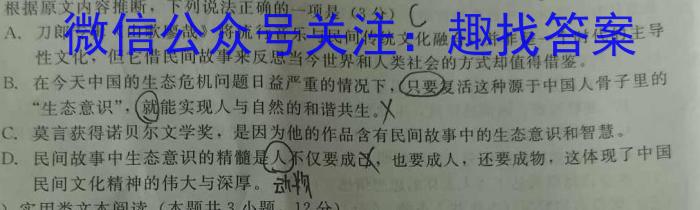 根据原文内容推断，下列说法正确的一项是（3分）C
微信公众号关注：趣找答案
A. 刀郎 将流行音乐与民间传统文化融 主导
性文化，但它借民间故事来反思当今世界和人类社会的方式却值得借鉴。
B. 在今天中国的生态危机问题日益严重的情况下，只要复活这种源于中国人骨子里的
“生态意识”，就能实现人与自然的和谐共生。X
C. 莫言获得诺贝尔文学奖，是因为他的作品含有民间故事中的生态意识和智慧。
D. 民间故事中生态意识的精髓是人不仅要成己，也要成人，还要成物，这体现了中国
民间文化精神的伟大与深厚。动物
）实用类文本阅读（本题共3小题，12分）